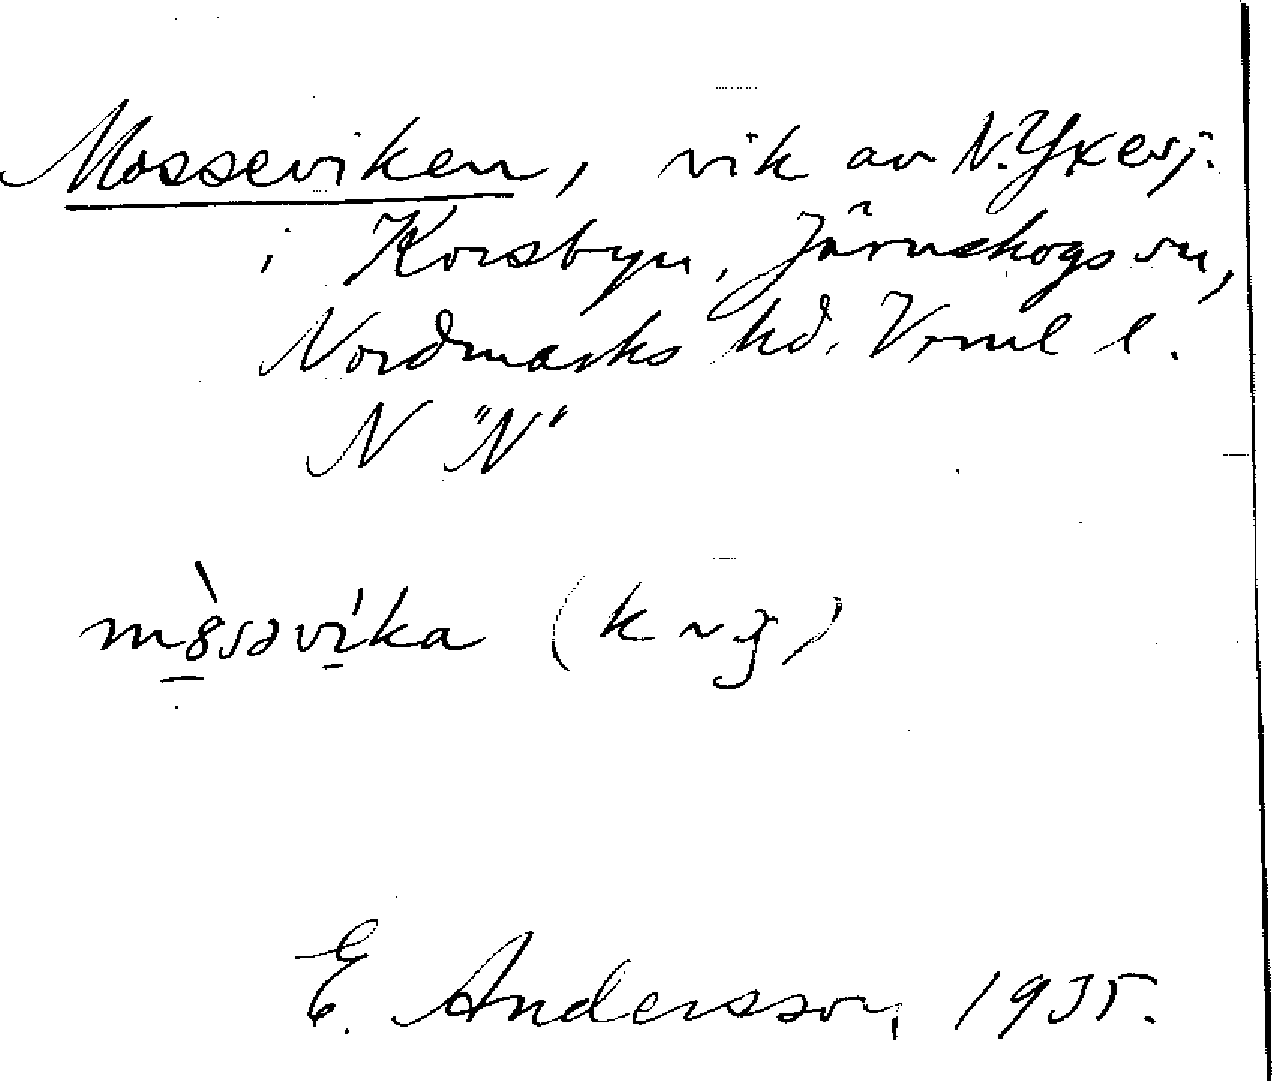 Mosseviken, vik av N. Yxesj.
i Korsbyn, Järnskogs sn,
Nordmarks hd. Vrml l.
N "N"
(k ~
E. Andersson, 1935.